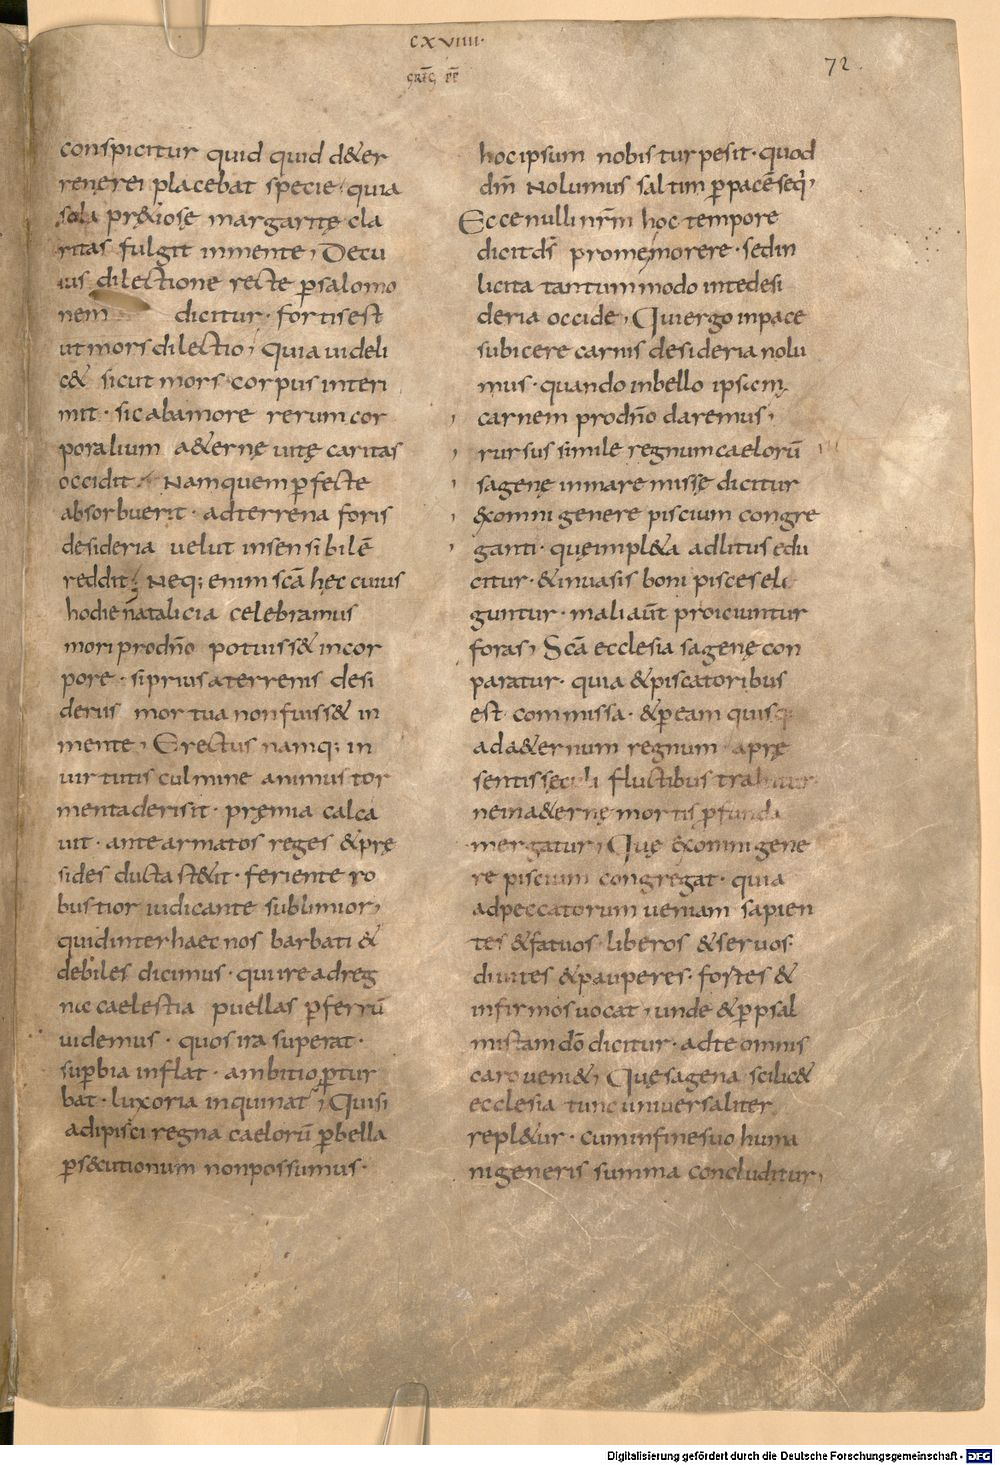 CXVIIII·
72
GRĒG PP
conspicitur quid quid d&er
renęrei placebat specie · quia
sola pręciosę margaritę cla
ritas fulgit inmente, Decu
ius dilectione recte p̄salomo
nem dicitur · fortis est
ut mors dilectio, Quia uideli
c& sicut mors corpus interi
mit · sic ab amore rerum cor
poralium a&ernę uitę caritas
occidit · Nam quem p̄fecte
absorbuerit · ad terrena foris
desideria uelut insensibilē
reddit, Neq; enim scā hęc cuius
hodie natalicia celebramus
mori prodn̄o potuiss& in cor
pore · si prius a terrenis desi
deriis mortua non fuiss& in
mente, Erectus namq; in
uirtutis culmine animus tor
menta derisit · pręmia calca
uit · ante armatos reges & prę
sides ducta st&it · feriente ro
bustior iudicante sublimior,
quid inter haec nos barbati &
debiles dicimus · qui ire ad reg
na caelestia puellas p̄ferrū
uidemus · quos ira superat ·
sup̄bia inflat · ambitio p̄tur
bat · luxoria inquinat, Qui si
adipisci regna caelorū p̄ bella
p̄s&cutionum non possumus ·
hoc ipsum nobis turpe sit · quod
dm̄ Nolumus saltim p̄ pacē seq̇,
Ecce nulli nr̄m hoc tempore
dicit ds̄ pro me morere · sed in
licita tantummodo in te desi
deria occide, Qui ergo in pace
subicere carnis desideria nolu
mus · quando in bello ipsam
carnem prodn̄o daremus,
rursus simile regnum caelorū
sagenę in mare missę dicitur
&xomni genere piscium congre
ganti · quę impl&a ad litus edu
citur · & in uasis boni pisces eli
guntur · mali aut̄ proiciuntur
foras, Scā ecclesia sagenę con
paratur · quia & piscatoribus
est commissa · & p̄ eam quisq;
ad a&ernum regnum a prę
sentis sęculi fluctibus trahitur
ne in a&ernę mortis p̄funda
mergatur, Quę exomni gene
re piscium congregat · quia
ad peccatorum ueniam sapien
tes & fatuos · liberos & seruos ·
diuites & pauperes · fortes &
infirmos uocat, unde & p̄ psal
mistam dō dicitur · ad te omnis
caro ueni&, Quę sagena scilic&
ecclesia tunc uniuersaliter
repl&ur · cum in fine suo huma
ni generis summa concluditur,
Digitalisierung gefördert durch die Deutsche Forschungsgemeinschaft - DFG